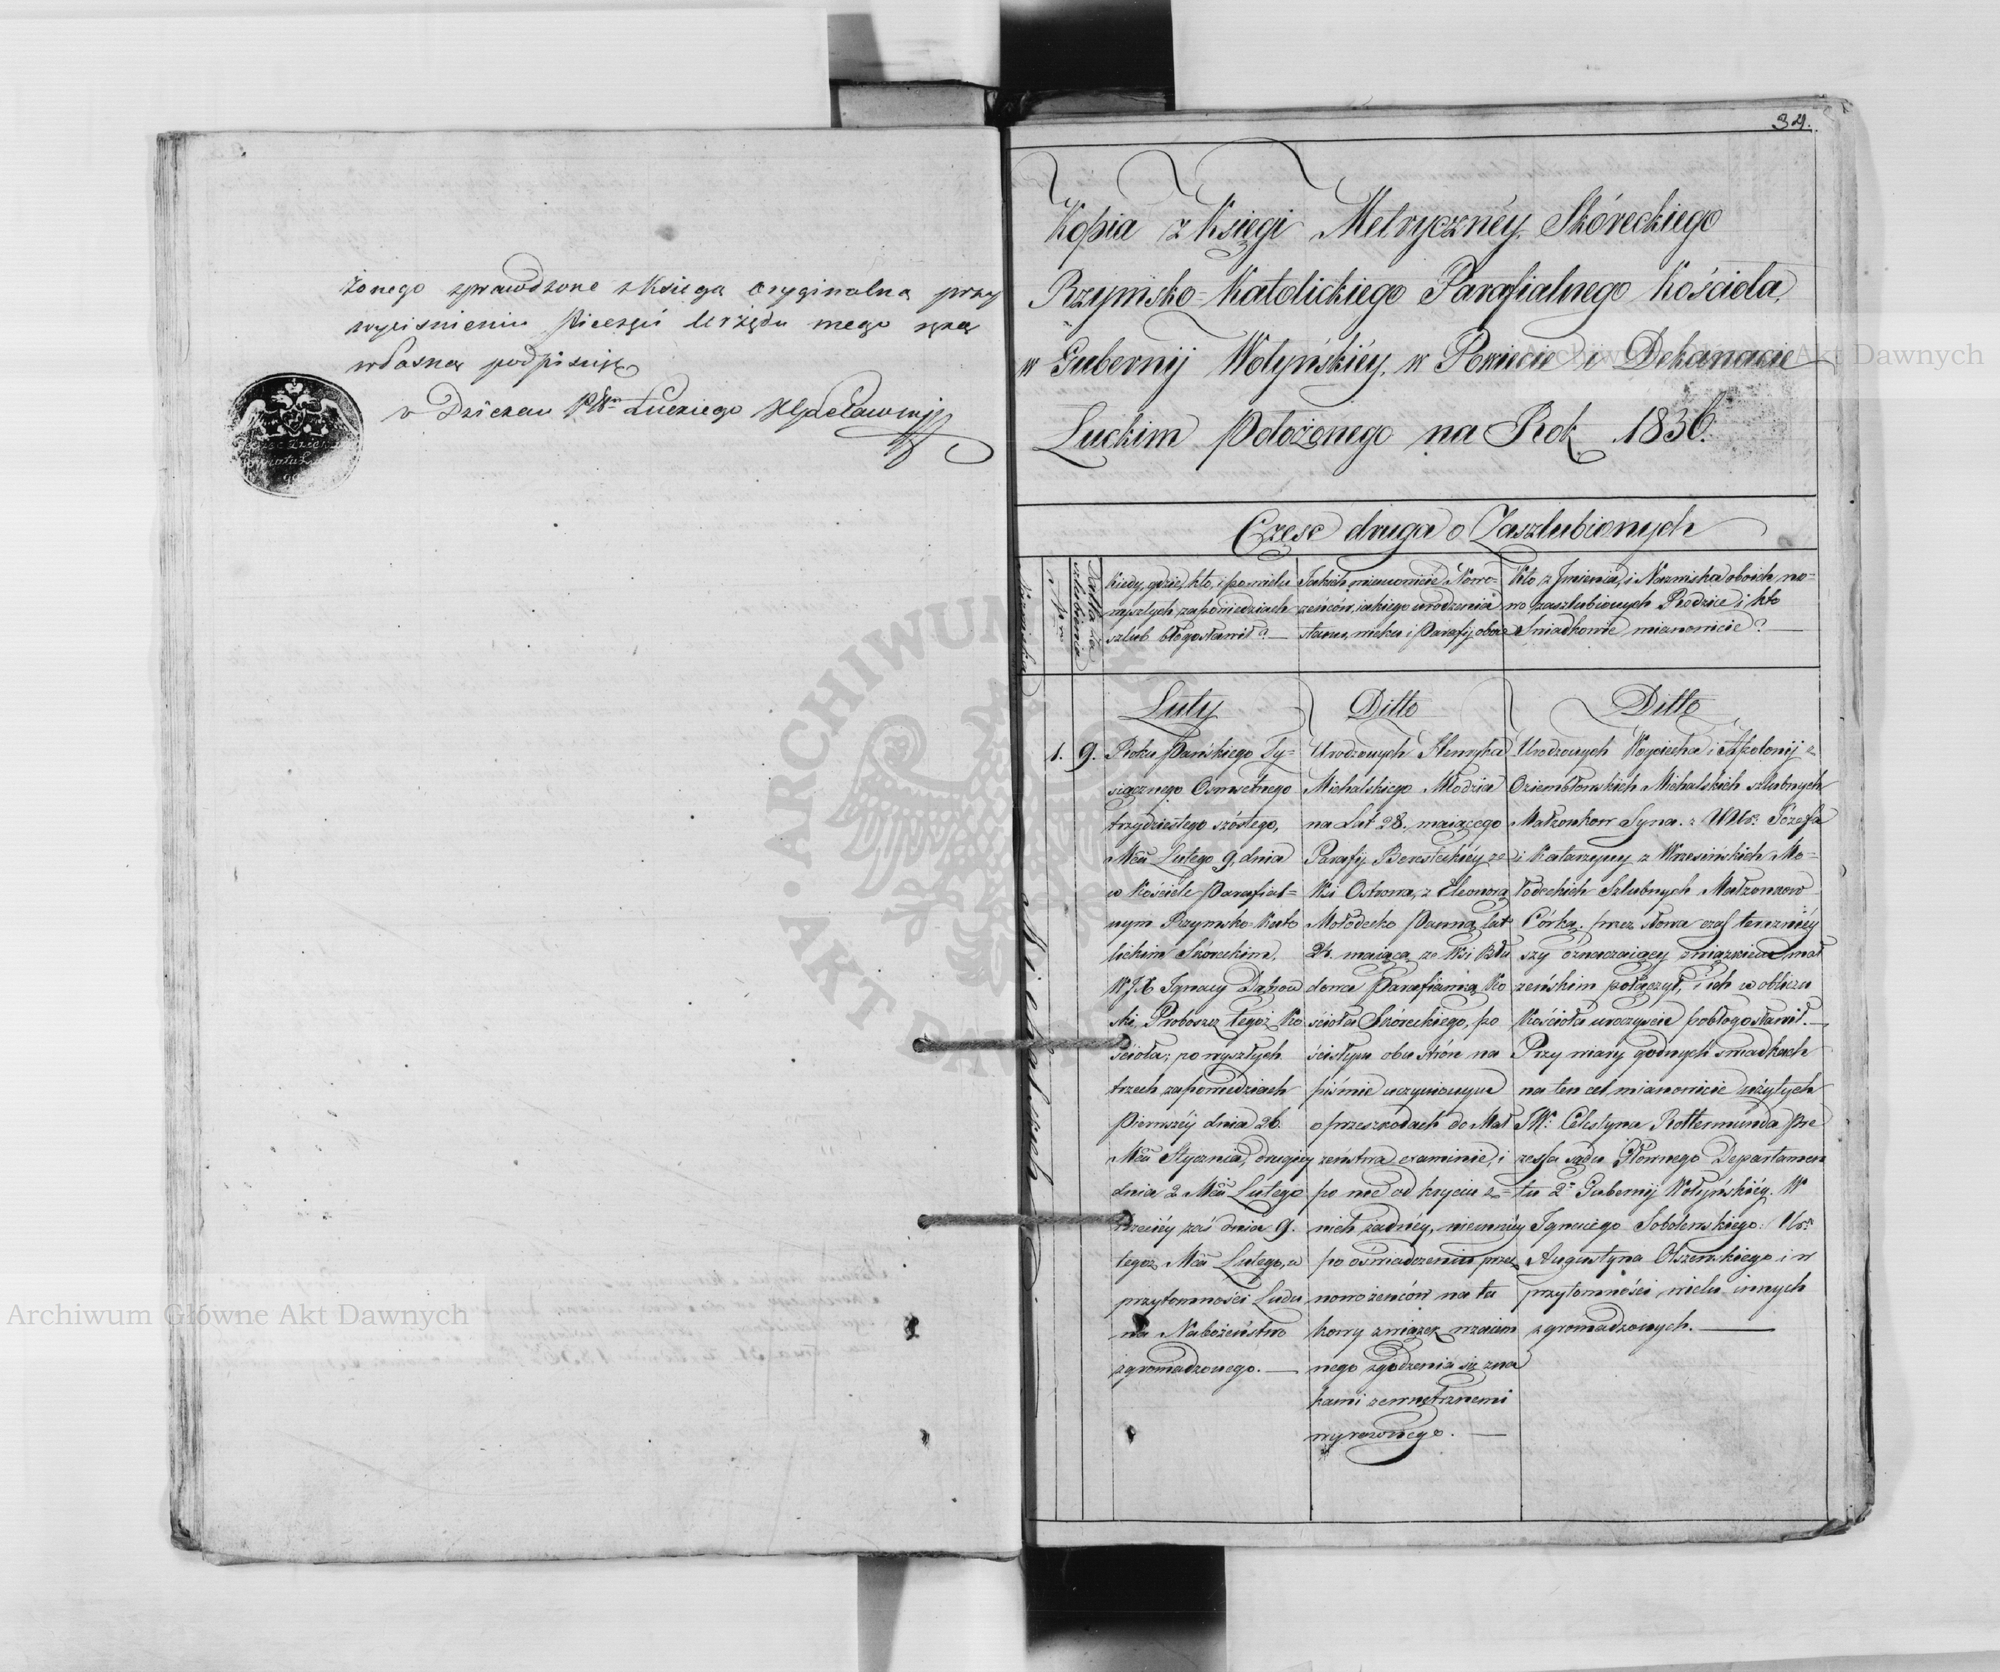 żonego sprawdzone z Księgą oryginalną przy
wyciśnieniu Pieczęci Urzędu mego ręką
własną podpisuję
Dziekan Łuckiego
34.
Kopia z Księgi Metryczney Skóreckiego
Rzymsko-Katolickiego Parafialnego Kościoła,
w Gubernij Wołyńskiéy, w Powiecie i Dekanacie
Łuckim Położonego na Rok 1836.
Częsc druga o Zaszlubionych
Kiedy, gdzie, kto, i po wielu
wyszłych zapowiedziach
szlub błogosławił?
Jakich mianowicie Nowo-
żeńców, iakiego urodzenia
stanu, wieku i Parafij oboie
Kto z Jmienia, i Nazwiska oboich no-
wo zaszlubionych Rodzice i kto
Swiadkowie mianowicie?
Luty
Ditto
Ditto
1. 9.
Roku Pańskiego Ty-
siącznego Osmsetnego
trzydziestego szóstego,
Mca Lutego 9, dnia
w Kościele Parafial-
nym Rzymsko-Kato
lickim Skóreckim,
WJX Ignacy
ski, Proboszcz tegoż Ko
ścioła; po wyszłych
trzech zapowiedziach
Pierwszéy dnia 26.
Mca Stycznia, drugiey
dnia 2 Mca Lutego
trzeciéy zaś dnia 9.
tegoż Mca Lutego, w
przytomności Ludu
na Nabożeństwo
zgromadzonego.
Urodzonych Henryka
Michalskiego Młodzia
na Lat 28. maiącego
Parafij Beresteckiéy ze
Wsi Ostrowa, z Eleonorą
Mołodecko Panną lat
24. maiącą ze Wsi
Parafianką Ko
ścioła Skóreckiego, po
ścisłym obu strón na
piśmie uczynionym
o przeszkodach do Mał
żeństwa examinie, i
po nie od kryciu z-
nich żadnéy, niemniéy
po oswiadczeniu przez
nowożeńców na ta
kowy związek wzaiem
nego zgodzenia się zna
kami zewnętrznemi
wyrażonego.
Urodzonych Woyciecha i Apolonij z
Dziembłowskich Michalskich szlubnych
Małżonków Syna. z WUr: Józefa
i Katarzyny z Wrzesińskich Mo-
łodeckich Szlubnych Małżonków
Córką. przez słowa czas terazniéy
szy oznaczaiący związkiem mał
żeńskim połączył, i ich w obliczu
Kościoła uroczyscie pobłogosławił.
Przy wiary godnych swiadkach
na ten cel mianowicie użytych
JW: Celestyna Rottermunda Pre
zessa sądu Głównego Departamen
tu 2° Gubernij Wołyńskiéy. W
Ignacego Sobolewskiego: Ur:
Augustyna Olszewskiego i w
przytomności wielu innych
zgromadzonych.
Archiwum Główne Akt Dawnych
Archiwum Główne Akt Dawnych